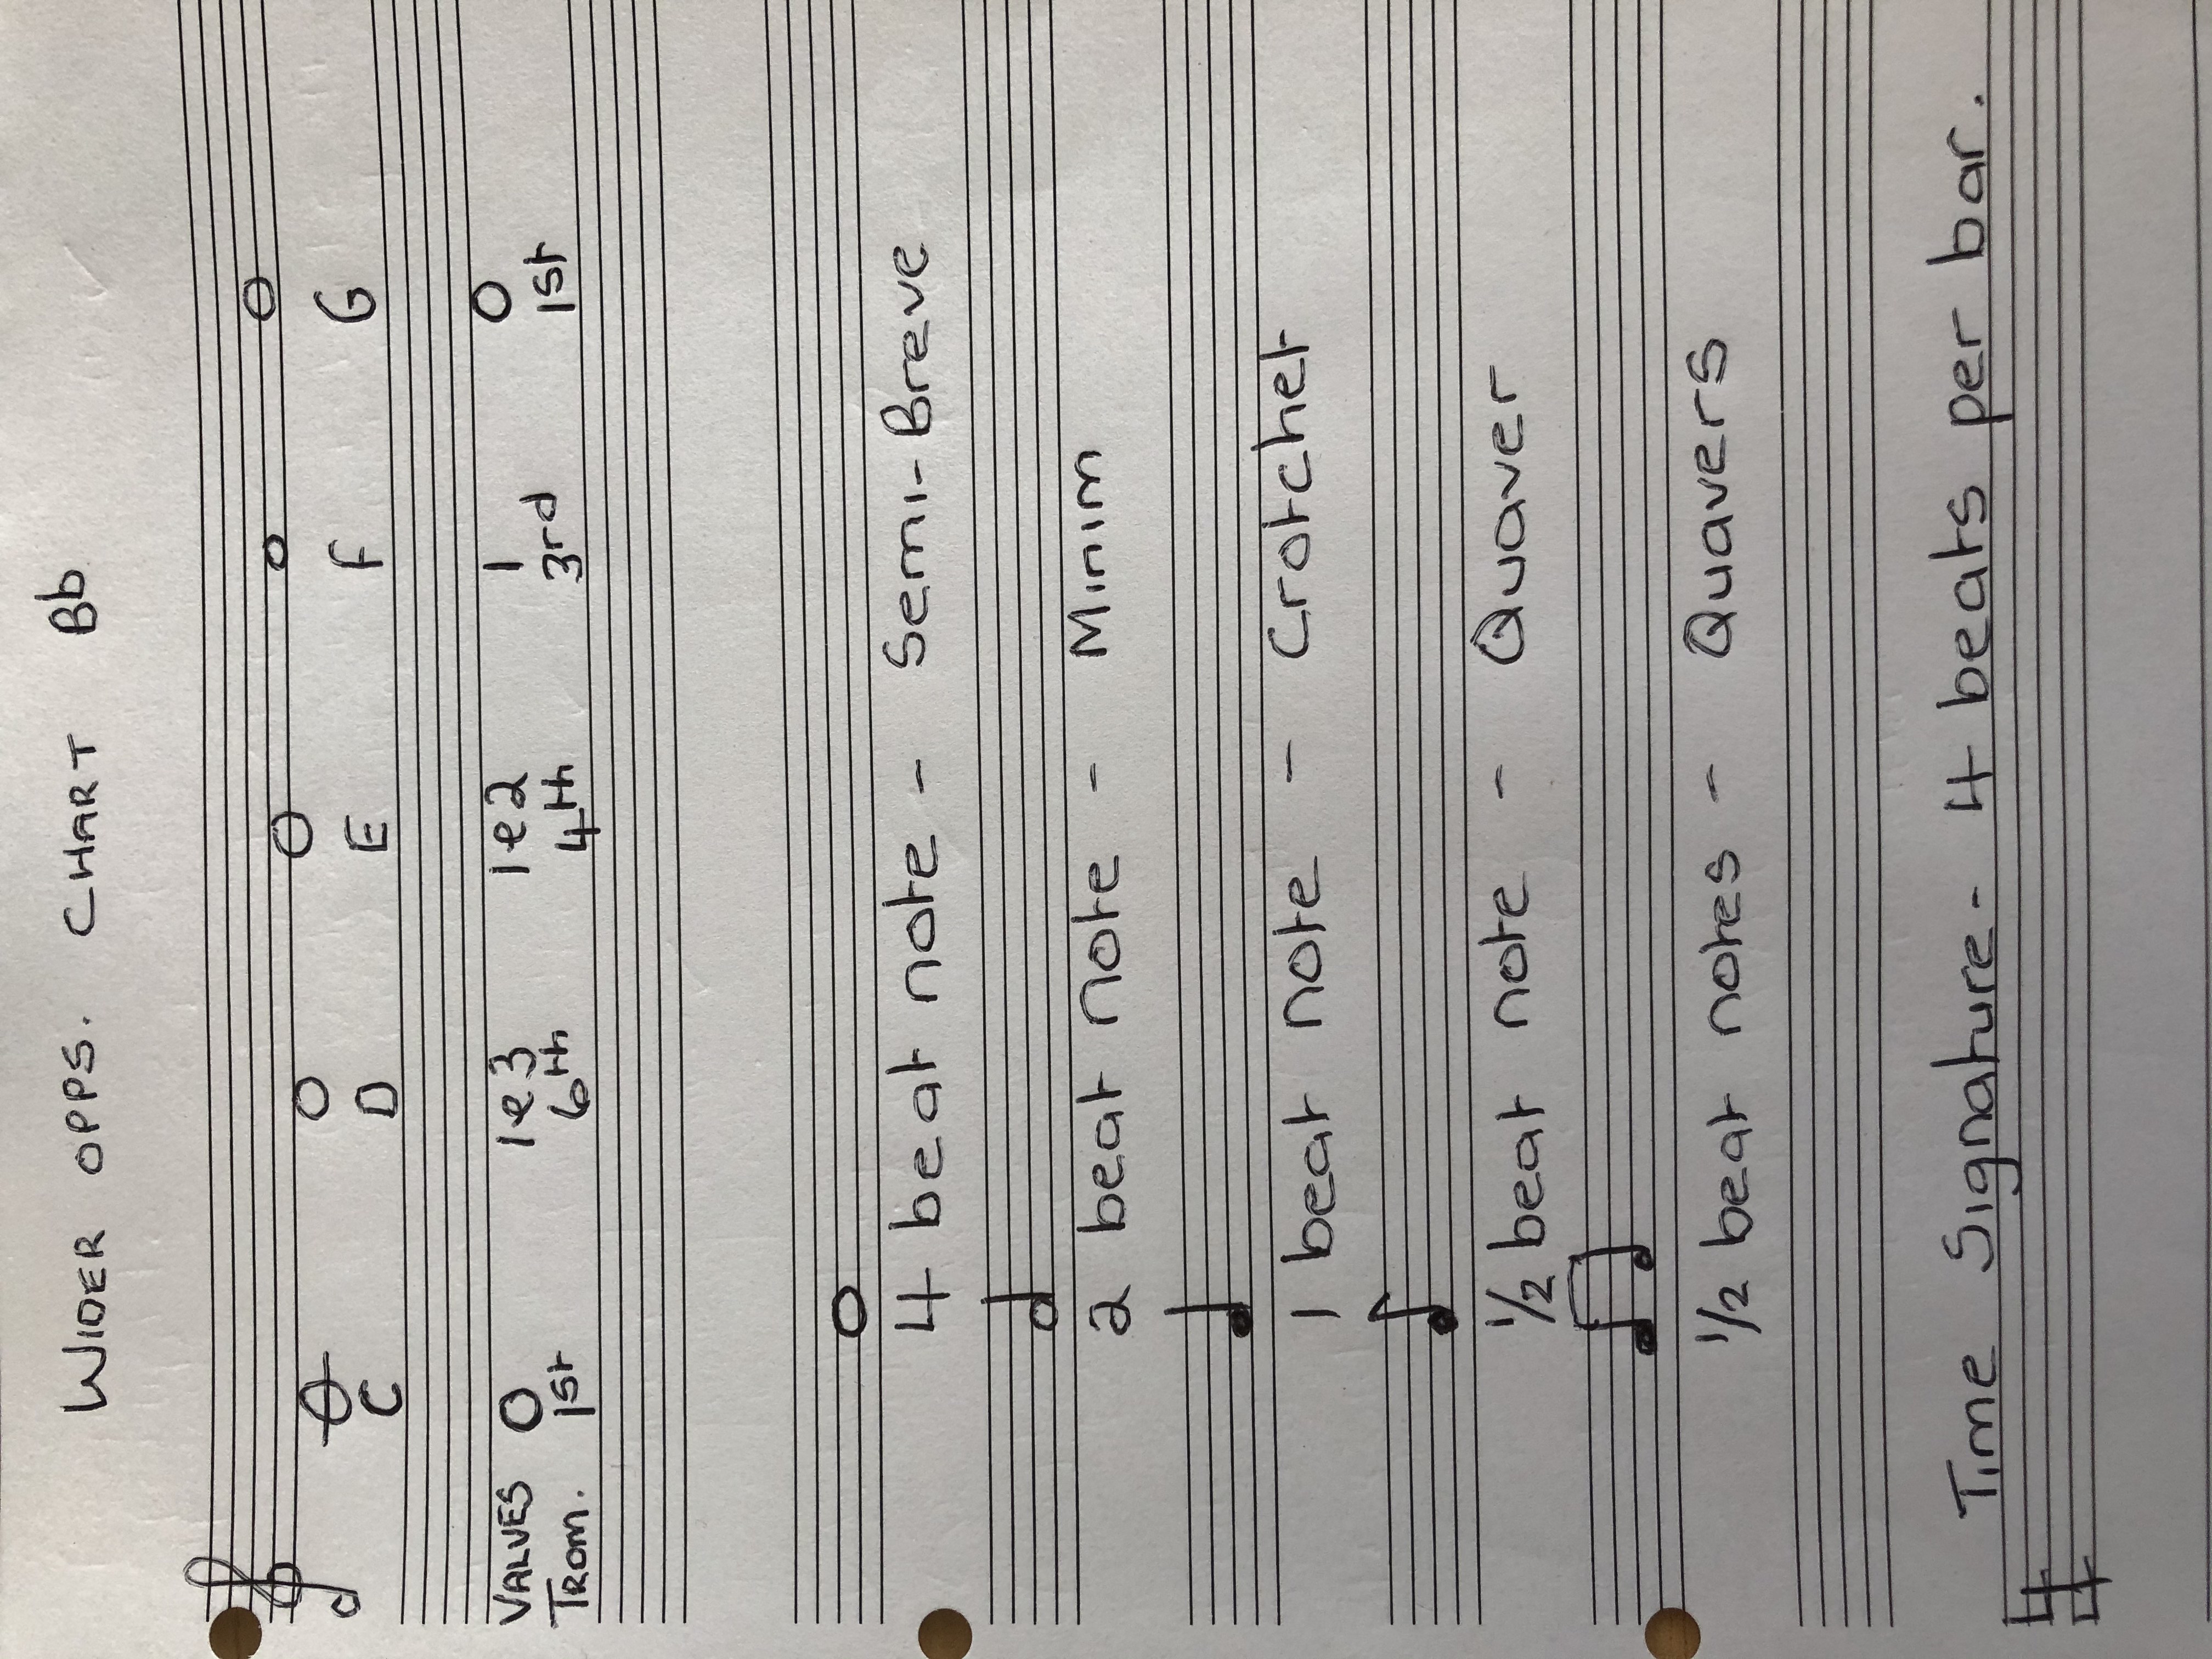 WIDER OPPS. CHART Bb
C D E F G
VALVES 0 1e3 1e2 1 0
TROM. 1st 6th 4th 3rd 1st
4 beat note - Semi-Breve
2 beat note - Minim
1 beat note - Crotchet
1/2 beat note - Quaver
1/2 beat notes - Quavers
Time Signature - 4 beats per bar.
4
4